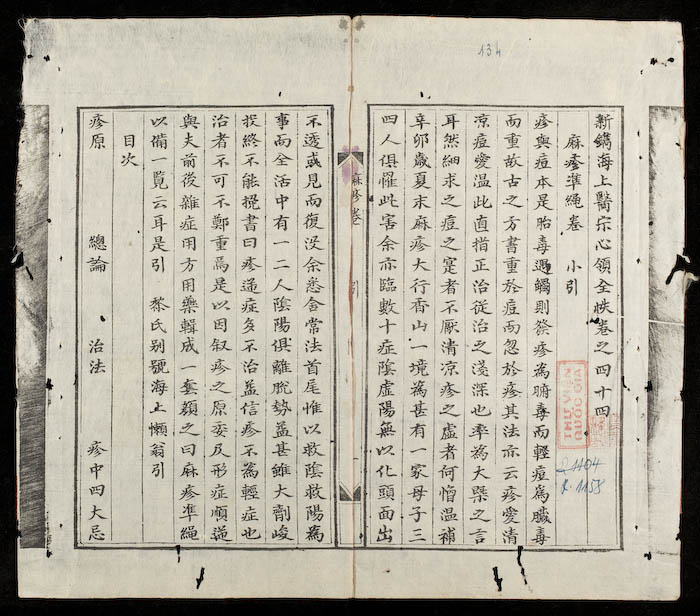 134
新鐫海上醫宗心領全帙卷之四十四
麻疹準繩卷 小引
疹與痘本是胎毒遇觸則發疹為腑毒而輕痘為臟毒
而重故古之方書重於痘而忽於疹其法亦云疹愛清
凉痘愛温此直指正治從治之淺深也率為大槩之言
耳然細求之痘之寔者不厭清凉疹之虛者何憎温補
辛卯歲夏末麻疹大行香山一境為甚有一家母子三
四人俱罹此害余亦臨數十症陰虛陽無以化頭面出
THƯ VIỆN
QUỐC GIA
1404
R.1158
麻疹卷 引
不透或見而復没余悉舍常法首尾惟以救陰救陽為
事而全活中有一二人陰陽俱離脫勢益甚雖大劑峻
投終不能挽書曰疹逆症多不治益信疹不為輕症也
治者不可不鄭重焉是以因叙疹之原委及形症順逆
與夫前後雜症用方用藥輯成一套額之曰麻疹準繩
以備一覽云耳是引 黎氏别號海上懶翁引
目次
疹原 總論 治法 疹中四大忌